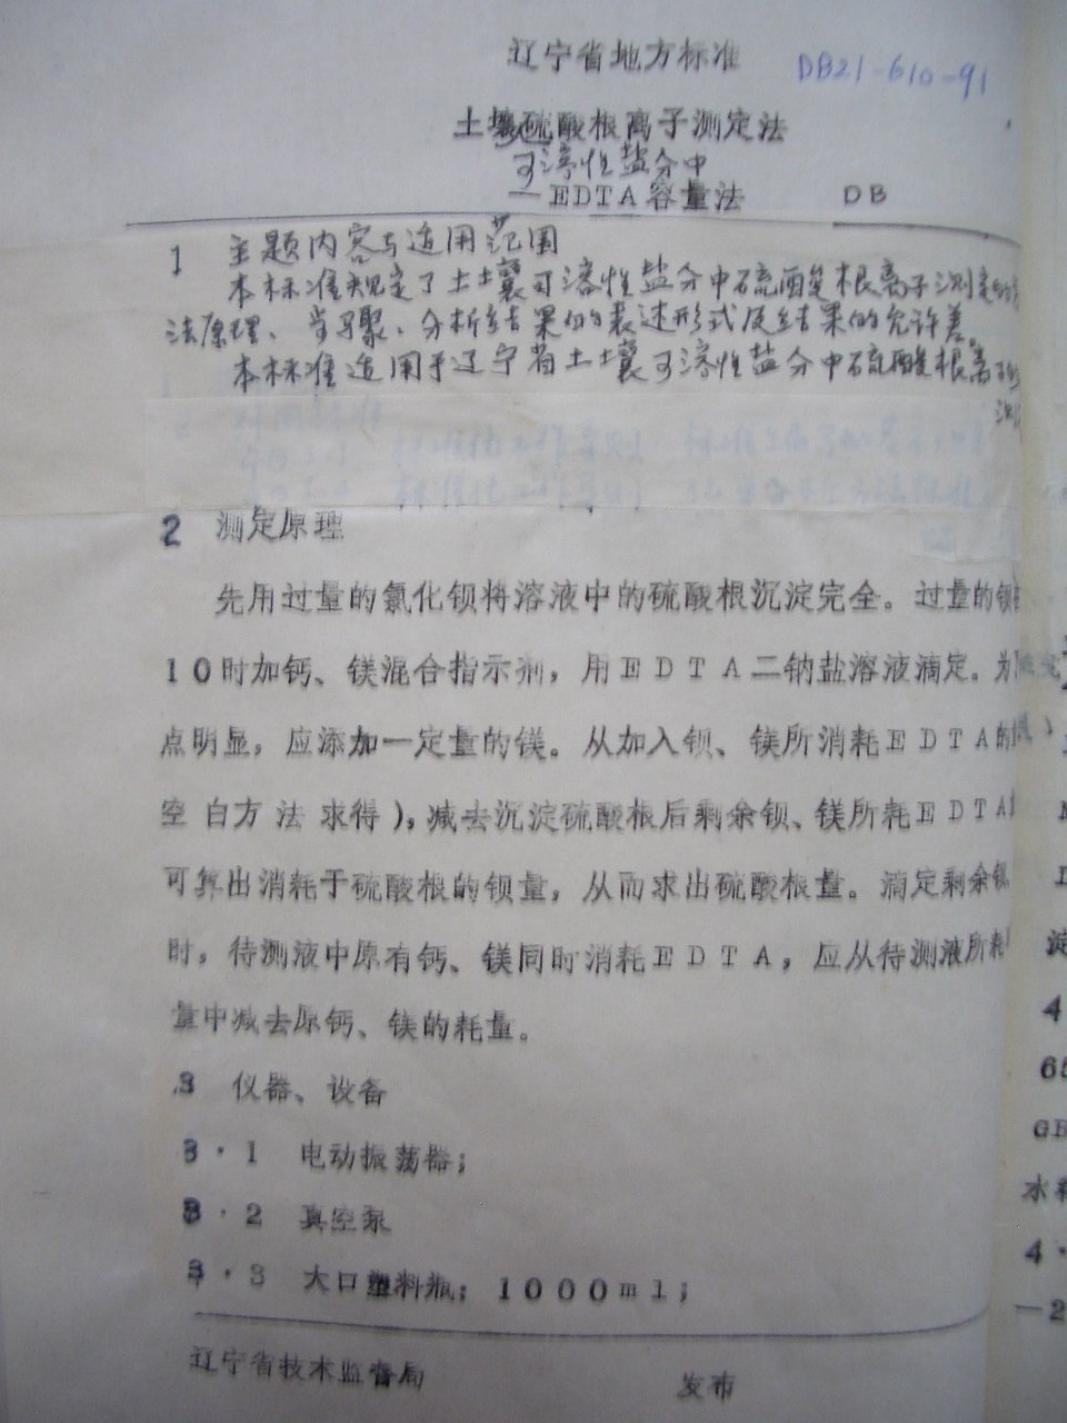 辽宁省地方标准
DB21-610-91
土壤硫酸根离子测定法
可溶性盐分中
—EDTA容量法 DB
1 主题内容与适用范围
本标准规定了土壤可溶性盐分中硫酸根离子测定的
法原理、步骤、分析结果的表述形式及结果的允许差。
本标准适用于辽宁省土壤可溶性盐分中硫酸根离子的
测
2 测定原理
先用过量的氯化钡将溶液中的硫酸根沉淀完全。过量的钡
10时加钙、镁混合指示剂，用EDTA二钠盐溶液滴定。为
点明显，应添加一定量的镁。从加入钡、镁所消耗EDTA的
空白方法求得），减去沉淀硫酸根后剩余钡、镁所耗EDTA
可算出消耗于硫酸根的钡量，从而求出硫酸根量。滴定剩余钡
时，待测液中原有钙、镁同时消耗EDTA，应从待测液所耗
量中减去原钙、镁的耗量。
3 仪器、设备
3·1 电动振荡器；
3·2 真空泵
3·3 大口塑料瓶；1000ml；
辽宁省技术监督局 发布
淀
4
65
GB
水
4·
—2